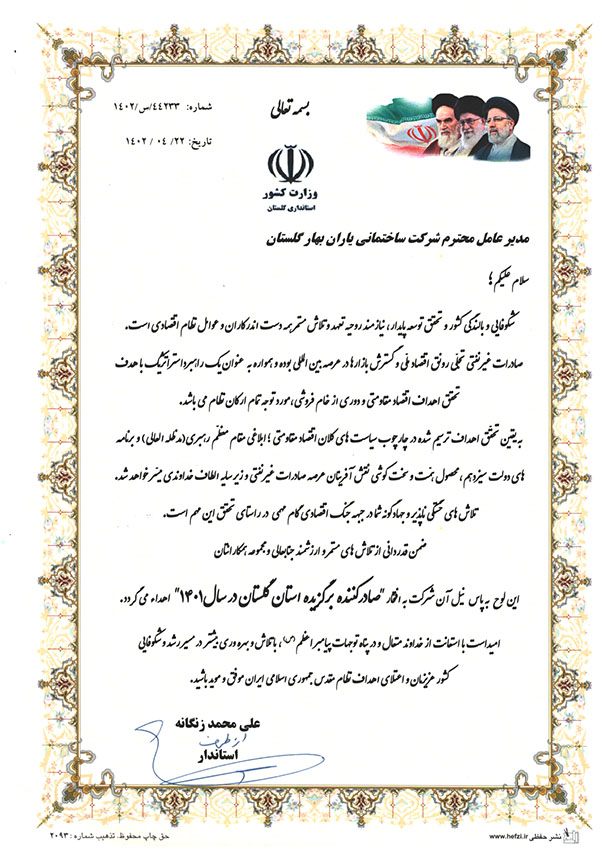 بسمه تعالی
شماره: ۱۴۰۲/س/۴۴۲۳۳
تاریخ: ۲۲/ ۰۴ / ۱۴۰۲
وزارت کشور
استانداری گلستان
مدیر عامل محترم شرکت ساختمانی یاران بهار گلستان
سلام علیکم؛
شکوفایی و بالندگی کشور و تحقق توسعه پایدار، نیازمند روحیه تعهد و تلاش مستمر همه دست اندرکاران و عوامل نظام اقتصادی است.
صادرات غیرنفتی تجلی رونق اقتصاد ملی و گسترش بازارها در عرصه بین المللی بوده و همواره به عنوان یک راهبرد استراتژیک با هدف
تحقق اهداف اقتصاد مقاومتی و دوری از خام فروشی، مورد توجه تمام ارکان نظام می باشد.
به یقین تحقق اهداف ترسیم شده در چارچوب سیاست های کلان اقتصاد مقاومتی؛ ابلاغی مقام معظم رهبری (مدظله العالی) و برنامه
های دولت سیزدهم، محصول همت و سخت کوشی نقش آفرینان عرصه صادرات غیرنفتی و زیر سایه الطاف خداوندی میسر خواهد شد.
تلاش های خستگی ناپذیر و جهادگونه شما در جبهه جنگ اقتصادی گام مهمی در راستای تحقق این مهم است.
ضمن قدردانی از تلاش های مستمر و ارزشمند جنابعالی و مجموعه همکارانتان
این لوح به پاس نیل آن شرکت به افتخار "صادرکننده برگزیده استان گلستان در سال ۱۴۰۱" اهداء می گردد.
امید است با استعانت از خداوند متعال و در پناه توجهات پیامبر اعظم (ص)، با تلاش و بهره وری بیشتر در مسیر رشد و شکوفایی
کشور عزیزمان و اعتلای اهداف نظام مقدس جمهوری اسلامی ایران موفق و موید باشید.
علی محمد زنگانه
از طرف
استاندار
نشر حفظی www.hefzi.ir
حق چاپ محفوظ. تذهیب شماره: ۲۰۹۳